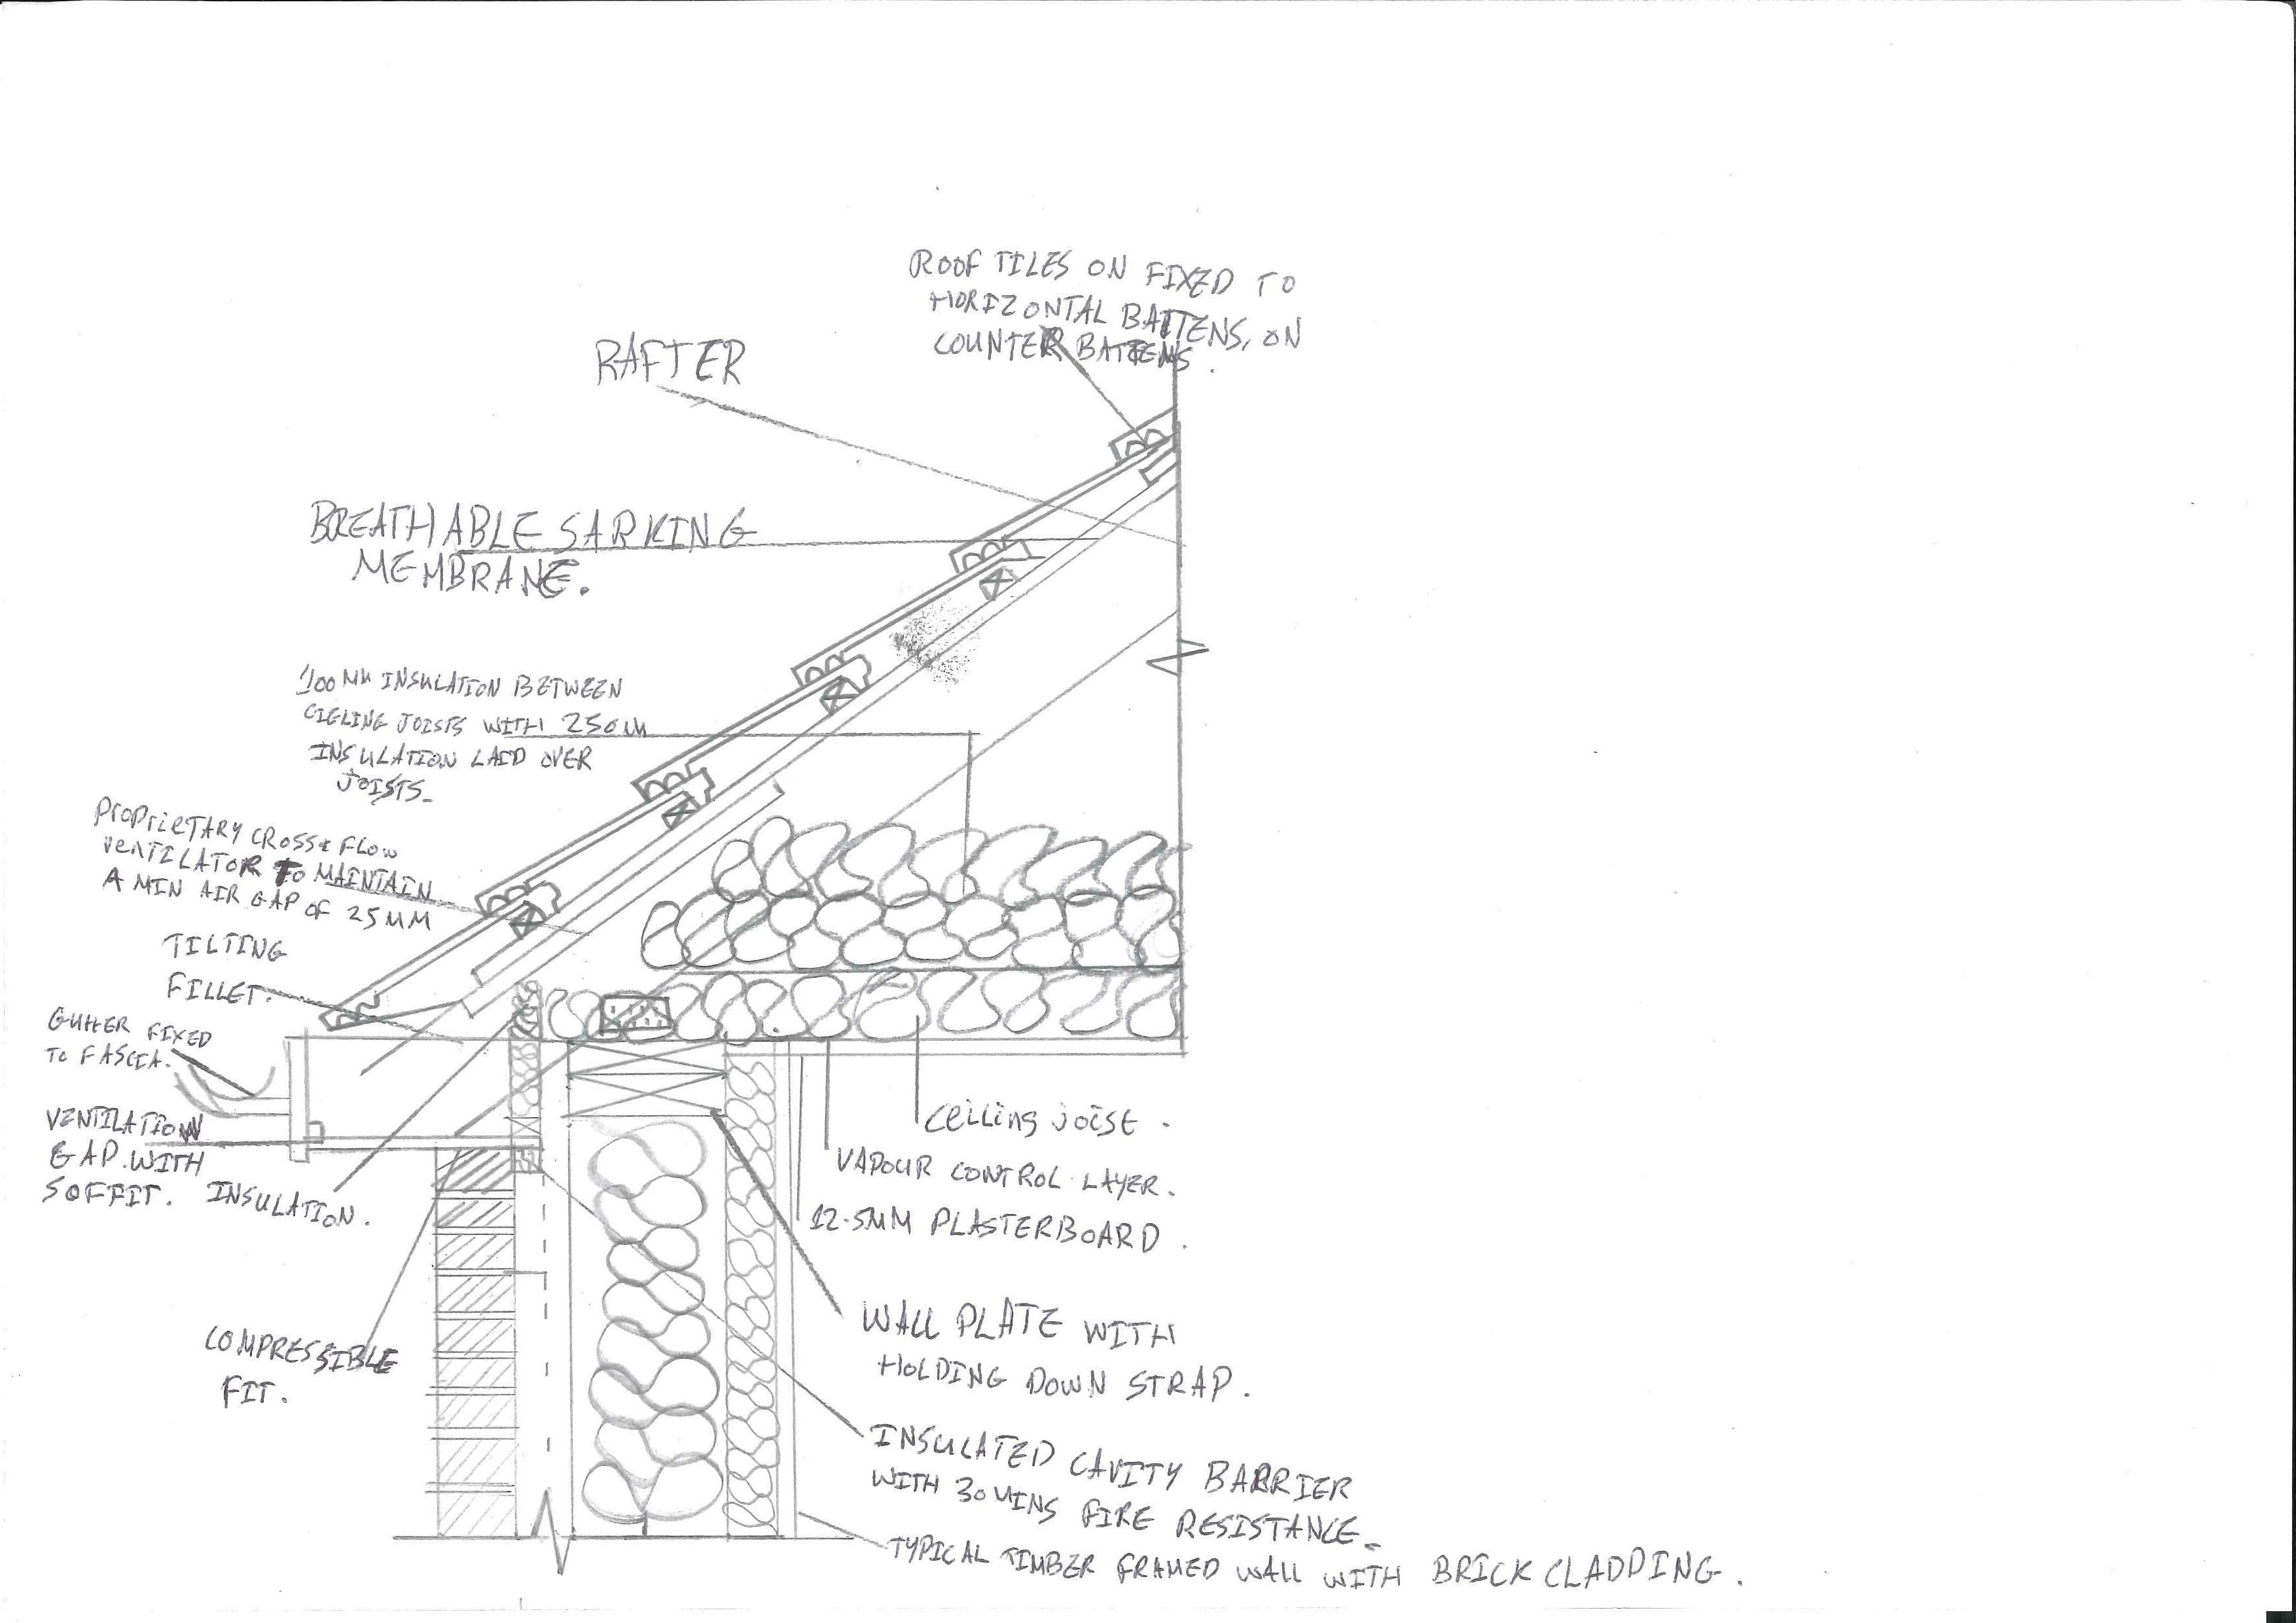 ROOF TILES ON FIXED TO
HORIZONTAL BATTENS, ON
COUNTER BATTENS.
RAFTER
BREATHABLE SARKING
MEMBRANE.
100MM INSULATION BETWEEN
CIELING JOISTS WITH 250MM
INSULATION LAID OVER
JOISTS.
PROPRIETARY CROSS FLOW
VENTILATOR TO MAINTAIN
A MIN AIR GAP OF 25MM
TILTING
FILLET.
GUTTER FIXED
TO FASCIA.
VENTILATION
GAP WITH
SOFFIT.
INSULATION.
COMPRESSIBLE
FIT.
CEILING JOIST.
VAPOUR CONTROL LAYER.
12.5MM PLASTERBOARD.
WALL PLATE WITH
HOLDING DOWN STRAP.
INSULATED CAVITY BARRIER
WITH 30MINS FIRE RESISTANCE.
TYPICAL TIMBER FRAMED WALL WITH BRICK CLADDING.